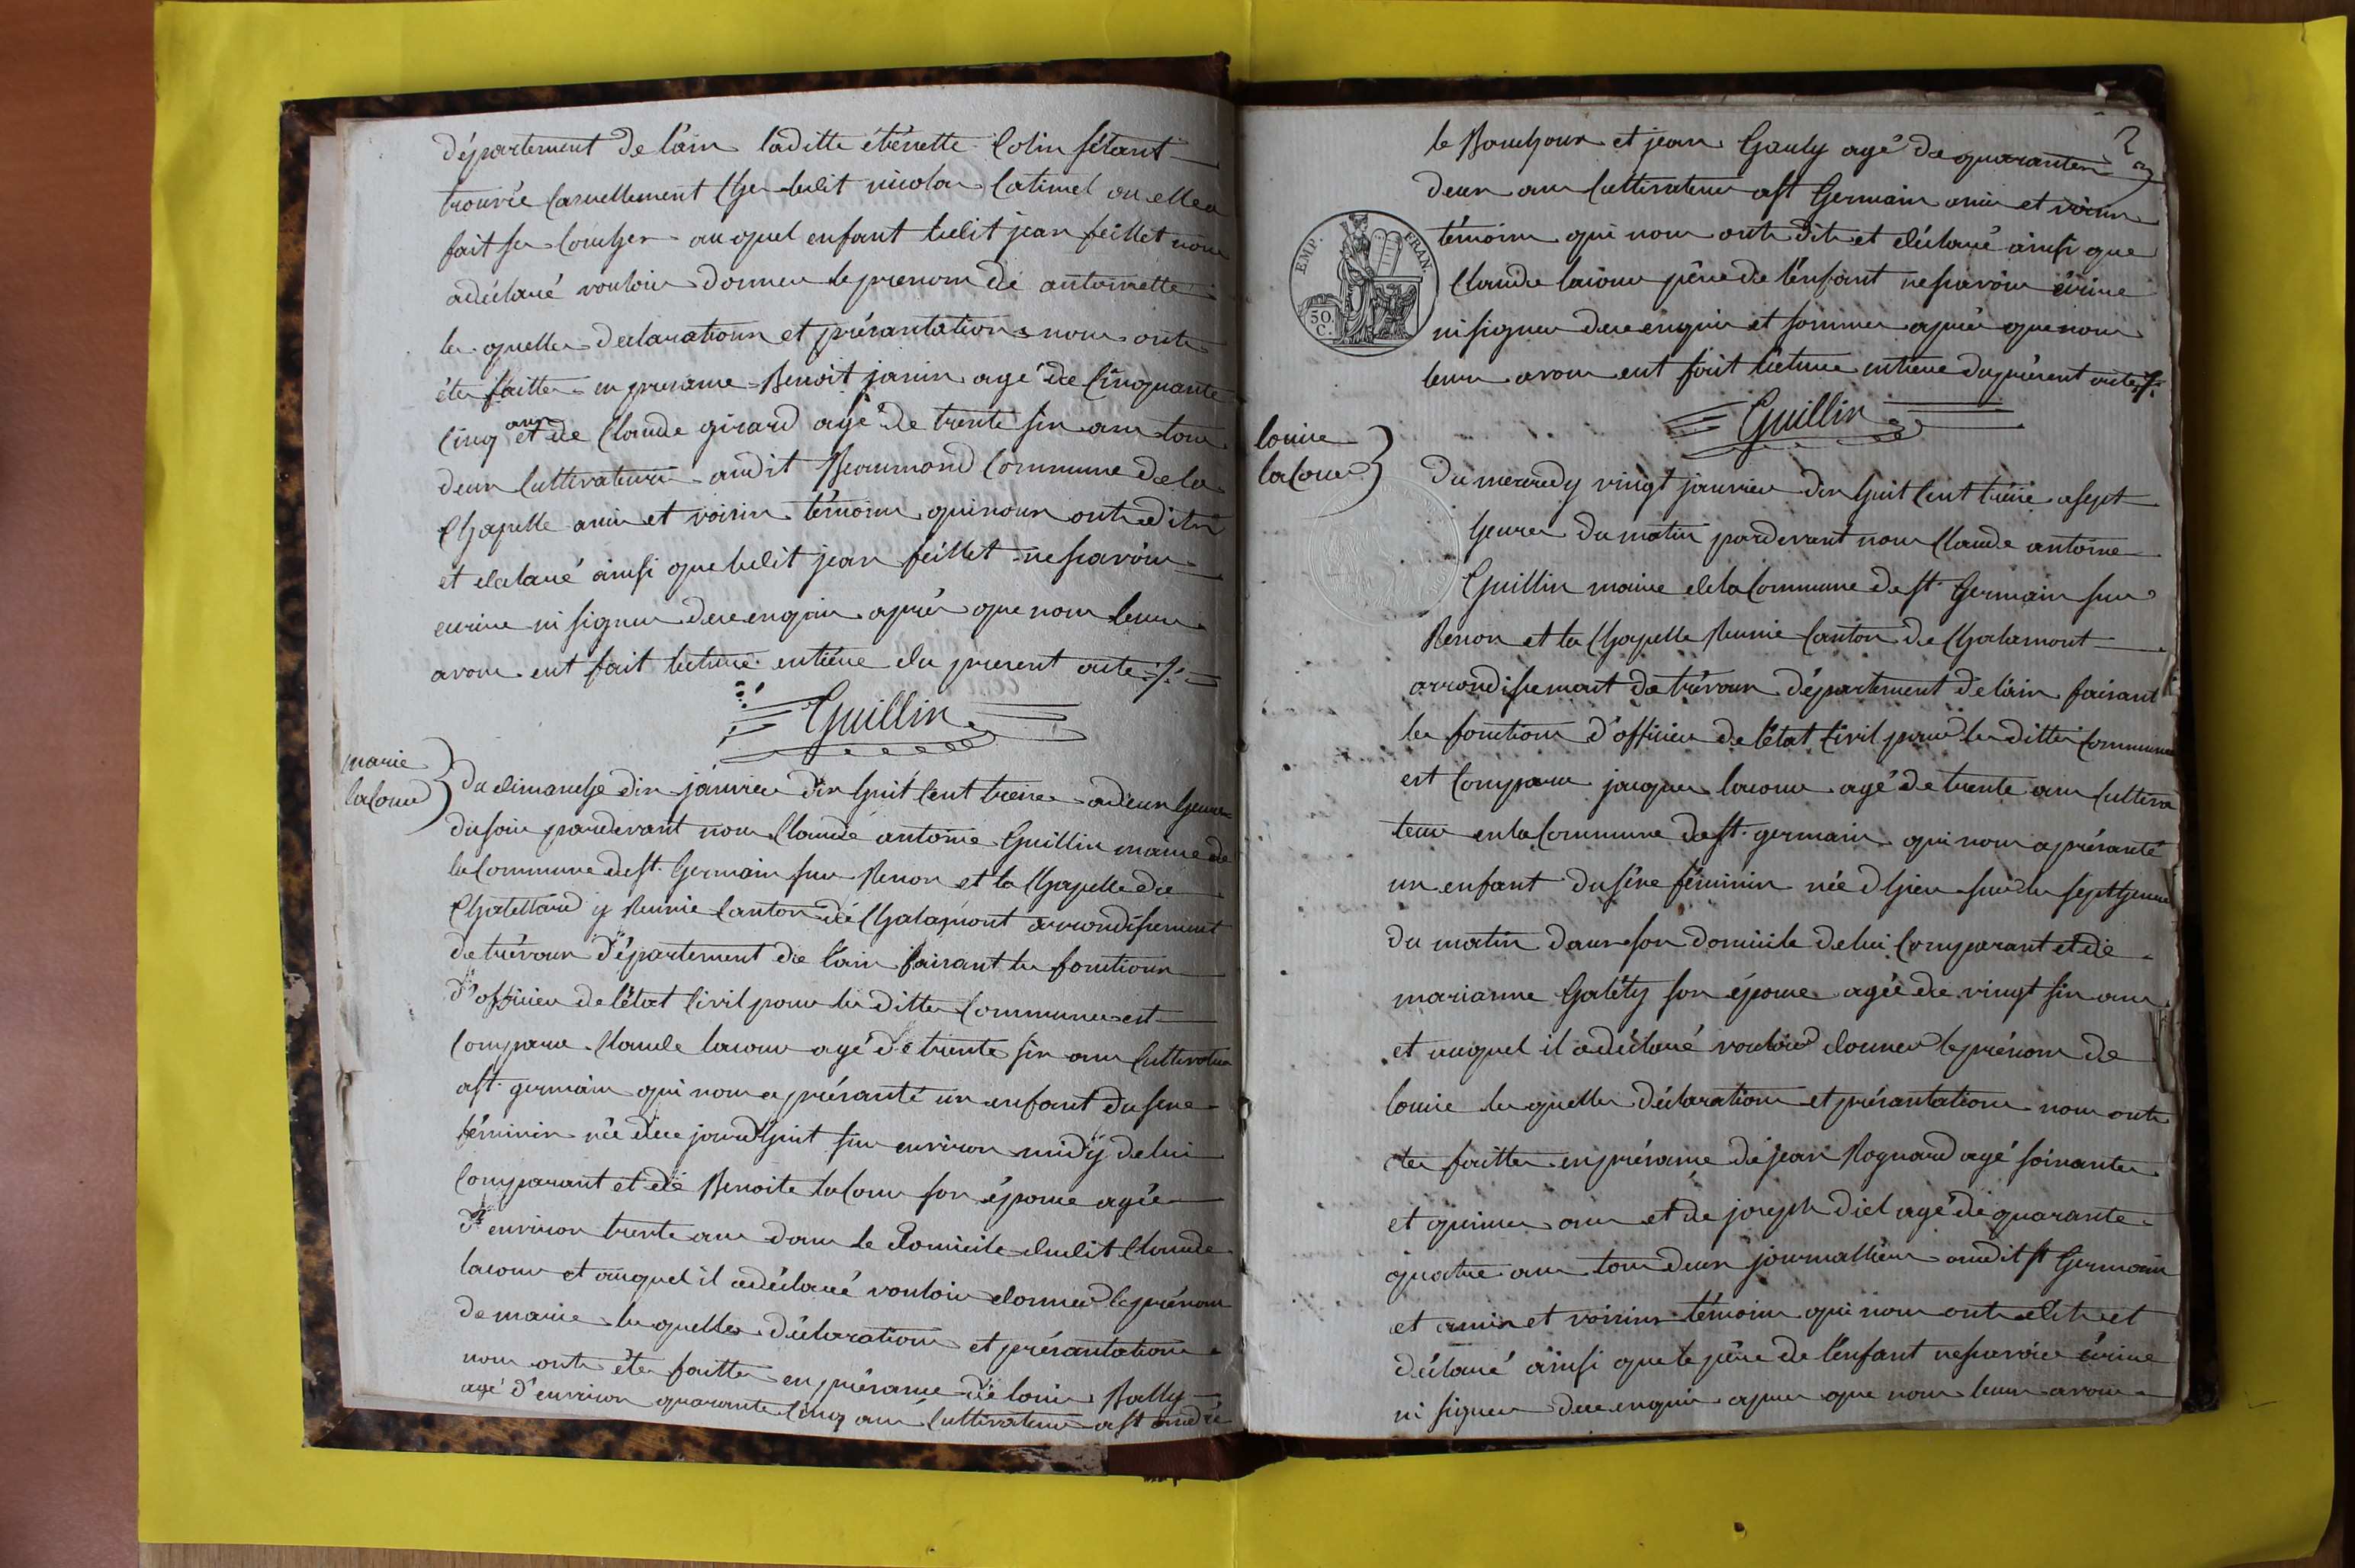 département de lain laditte étienette Colin s'étant
trouvée casuellement Chez ledit nicolas Catimel ou elle a
fait ses Couches auquel enfant ledit jean feillet nous
a déclaré vouloir donner le prenom de antoinette
les quelles declarations et présantations nous ont
étés faittes en presance Benoit janin agé de Cinquante
Cinq ans et de Claude girard agé de trente six ans tous
deux Cultivateurs audit Beaumond Commune de la
Chapelle amis et voisins témoins qui nous ont dits
et déclaré ainsi que ledit jean feillet ne savoir
ecrire ni signer de ce enquis après que nous leurs
avons eut fait lecture entiére du present acte
Guillin
marie
lacour
du dimanche dix janvier dix huit Cent treize a deux heures
du soir pardevant nous Claude antoine Guillin maire de
la Commune de st. Germain sur Renon et la Chapelle du
Chatellard y Reunie Canton de Chalamont arrondissement
de trévoux département de l'ain faisant les fonctions
d'officier de l'état Civil pour les dittes Communes est
Comparu Claude lacour agé de trente six ans Cultivateur
a st. germain qui nous a présanté un enfant du sexe
féminin née de ce jourd'huit sur environ midy de lui
Comparant et de Benoite lacour son épouse agée
d'environ trente ans dans le domicile dudit Claude
lacour et auquel il a déclaré vouloir donner le prénom
de marie les quelles déclarations et présantations
nous ont étés faittes en présance de louis Bally
agé d'environ quarante Cinq ans Cultivateur a st andré
le Bouchoux et jean Gauly agé de quarante
deux ans Cultivateur a st Germain amis et voisins
témoins qui nous ont dits et déclaré ainsi que
Claude lacour père de l'enfant ne savoir écrire
ni signer de ce enquis et sommes après que nous
leurs avons eut fait lecture entiere du présent acte
EMP. FRAN.
50 C.
Guillin
louise
lacour
Du mercredy vingt janvier dix huit Cent treize a sept
heures du matin pardevant nous Claude antoine
Guillin maire de la Commune de st. Germain sur
Renon et la Chapelle Reunie Canton de Chalamont
arrondissement de trévoux département de l'ain faisant
les fonctions d'officier de l'état Civil pour les dittes Communes
est Comparu jacques lacour agé de trente ans Cultiva
teur en la Commune de st. germain qui nous a présanté
un enfant du sexe féminin née d'hier sur les sept heures
du matin dans son domicile de lui Comparant et de
marianne Galéty son épouse agée de vingt six ans
et auquel il a déclaré vouloir donner le prénom de
louise les quelles déclarations et présantations nous ont
étés faittes en présance de jean Rognard agé soixante
et quinze ans et de joseph diel agé de quarante
quatre ans tous deux journalliers audit st Germain
et amis et voisins témoins qui nous ont dits et
déclaré ainsi que le père de l'enfant ne savoir écrire
ni signer de ce enquis apres que nous leurs avons